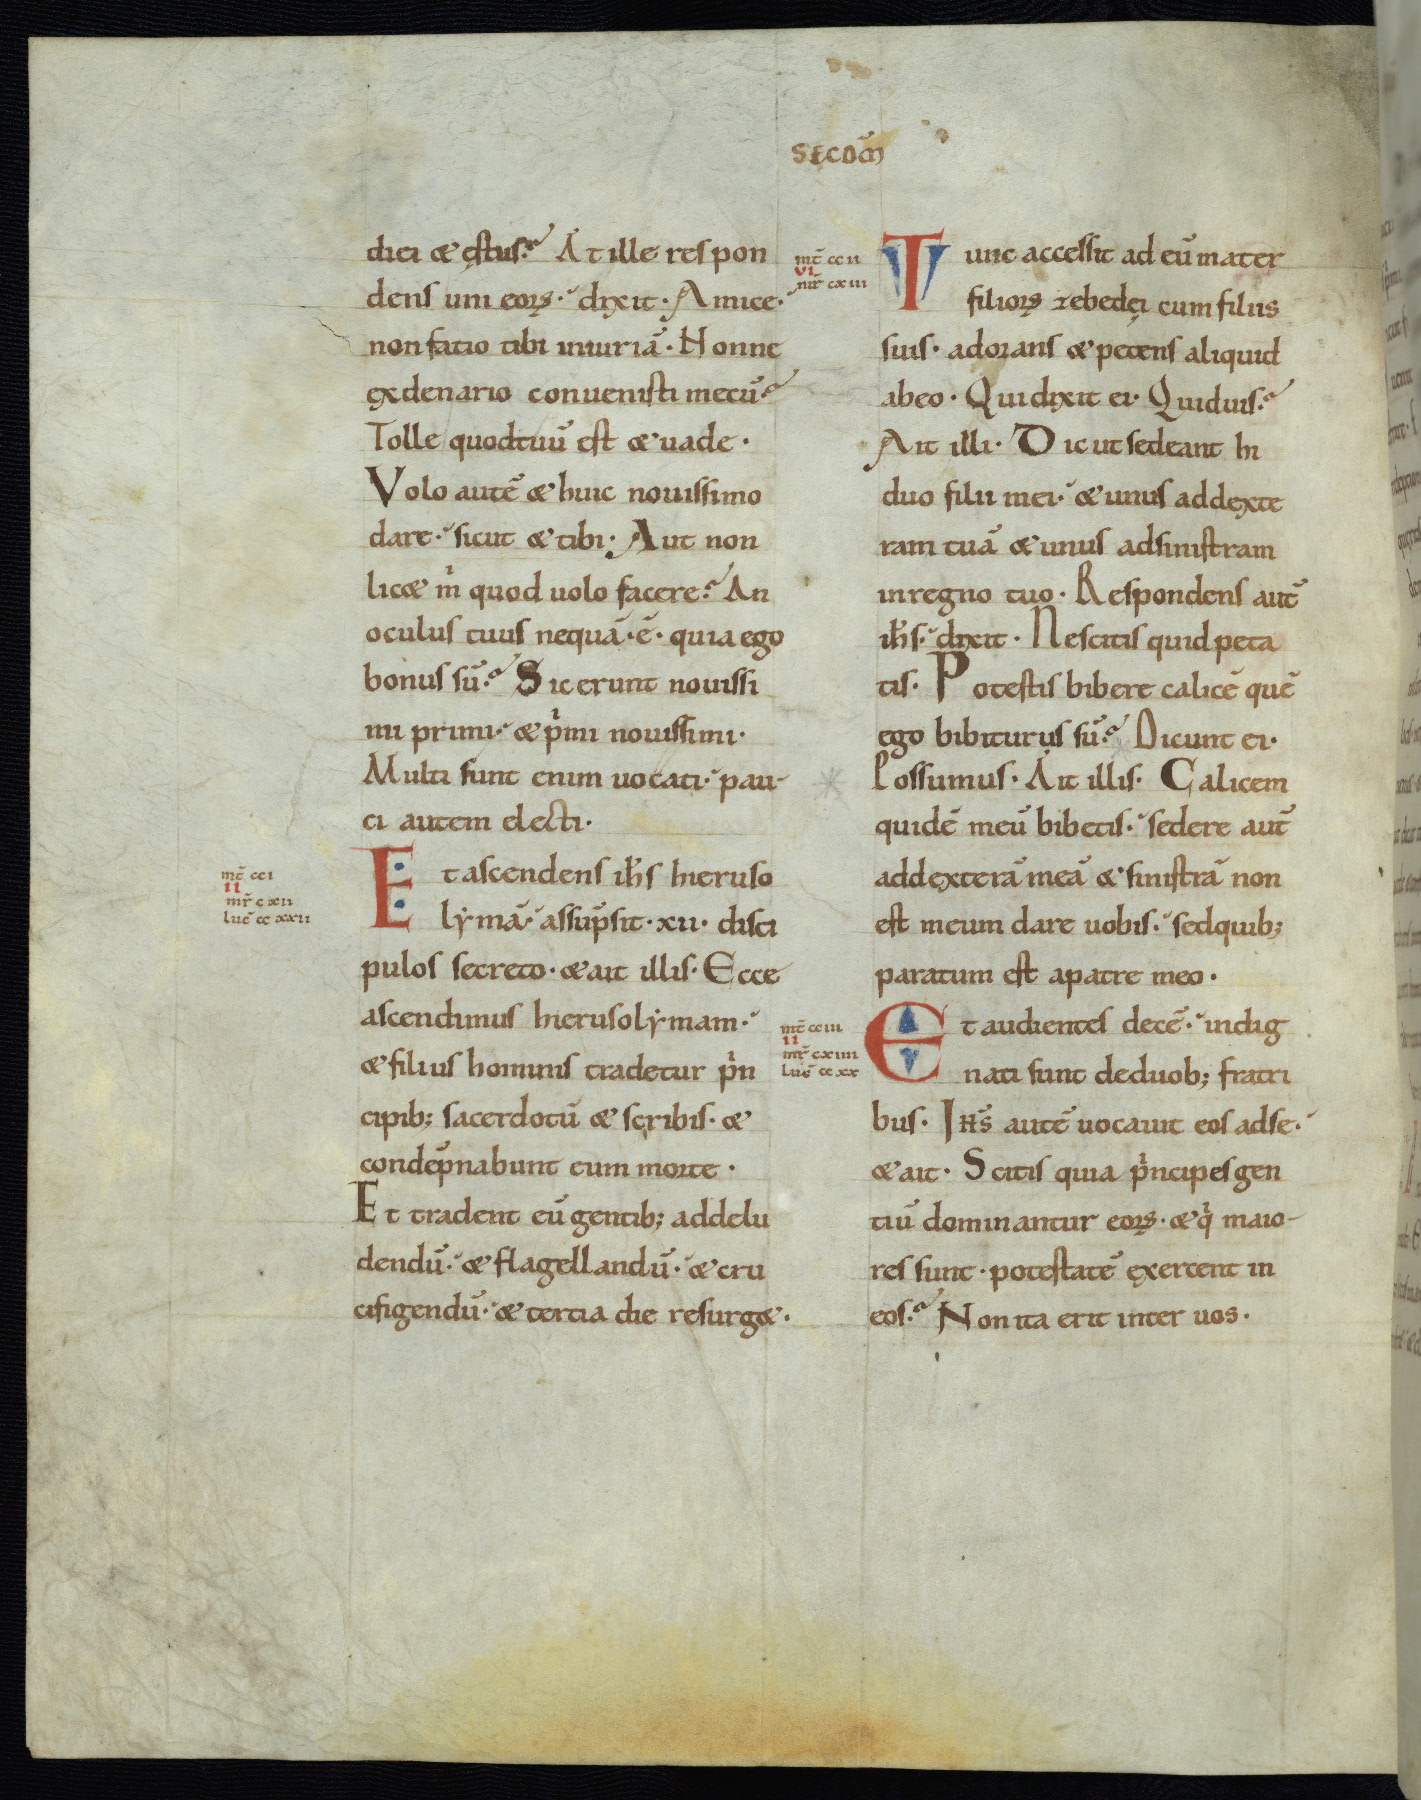 SECDM̄
diei & ęstus? At ille respon
dens uni eorꝝ· dixit· Amice·
non fatio tibi iniuriā· Nonne
ex denario conuenisti mecū?
Tolle quod tuū est & uade·
Volo autē & huic nouissimo
dare· sicut & tibi· Aut non
lic& m̍ quod uolo facere? An
oculus tuus nequā·ē· quia ego
bonus sū? Sic erunt nouissi
mi primi· & p̍mi nouissimi·
Multi sunt enim uocati· pau-
ci autem electi·
mt̄ cci
II
mr̄ cxii
luc̄ cc xxii
Et ascendens ih̄s hieruso
lẏmā· assūpsit·xii· disci
pulos secreto· & ait illis· Ecce
ascendimus hierusolẏmam·
& filius hominis tradetur p̍n
cipib; sacerdotū & scribis· &
condēpnabunt eum morte·
Et tradent eū gentib; addelu
dendū· & flagellandū· & cru
cifigendū· & tertia die resurg&·
mt̄ cc ii
VI
mr̄ cxiii
Tunc accessit ad eū mater
filiorꝝ zebedęi cum filiis
suis· adorans & petens aliquid
abeo· Qui dixit ei· Quid uis?
Ait illi· Dic ut sedeant hi
duo filii mei· & unus addexte
ram tuā & unus adsinistram
inregno tuo· Respondens aut̄
ih̄s· dixit· Nescitis quid peta
tis· Potestis bibere calicē quē
ego bibiturus sū? Dicunt ei·
Possumus· Ait illis· Calicem
quidē meū bibetis· sedere aut̄
addexterā meā & sinistrā non
est meum dare uobis· sed quib;
paratum est apatre meo·
mt̄ cc iii
II
mr̄ cxiiii
luc̄ cc xx
Et audientes decē· indig
nati sunt deduob; fratri
bus· Ih̄s autē uocauit eos adse·
& ait· Scitis quia p̍ncipes gen
tiū dominantur eorꝝ· & q̍ maio-
res sunt· potestatē exercent in
eos? Non ita erit inter uos·